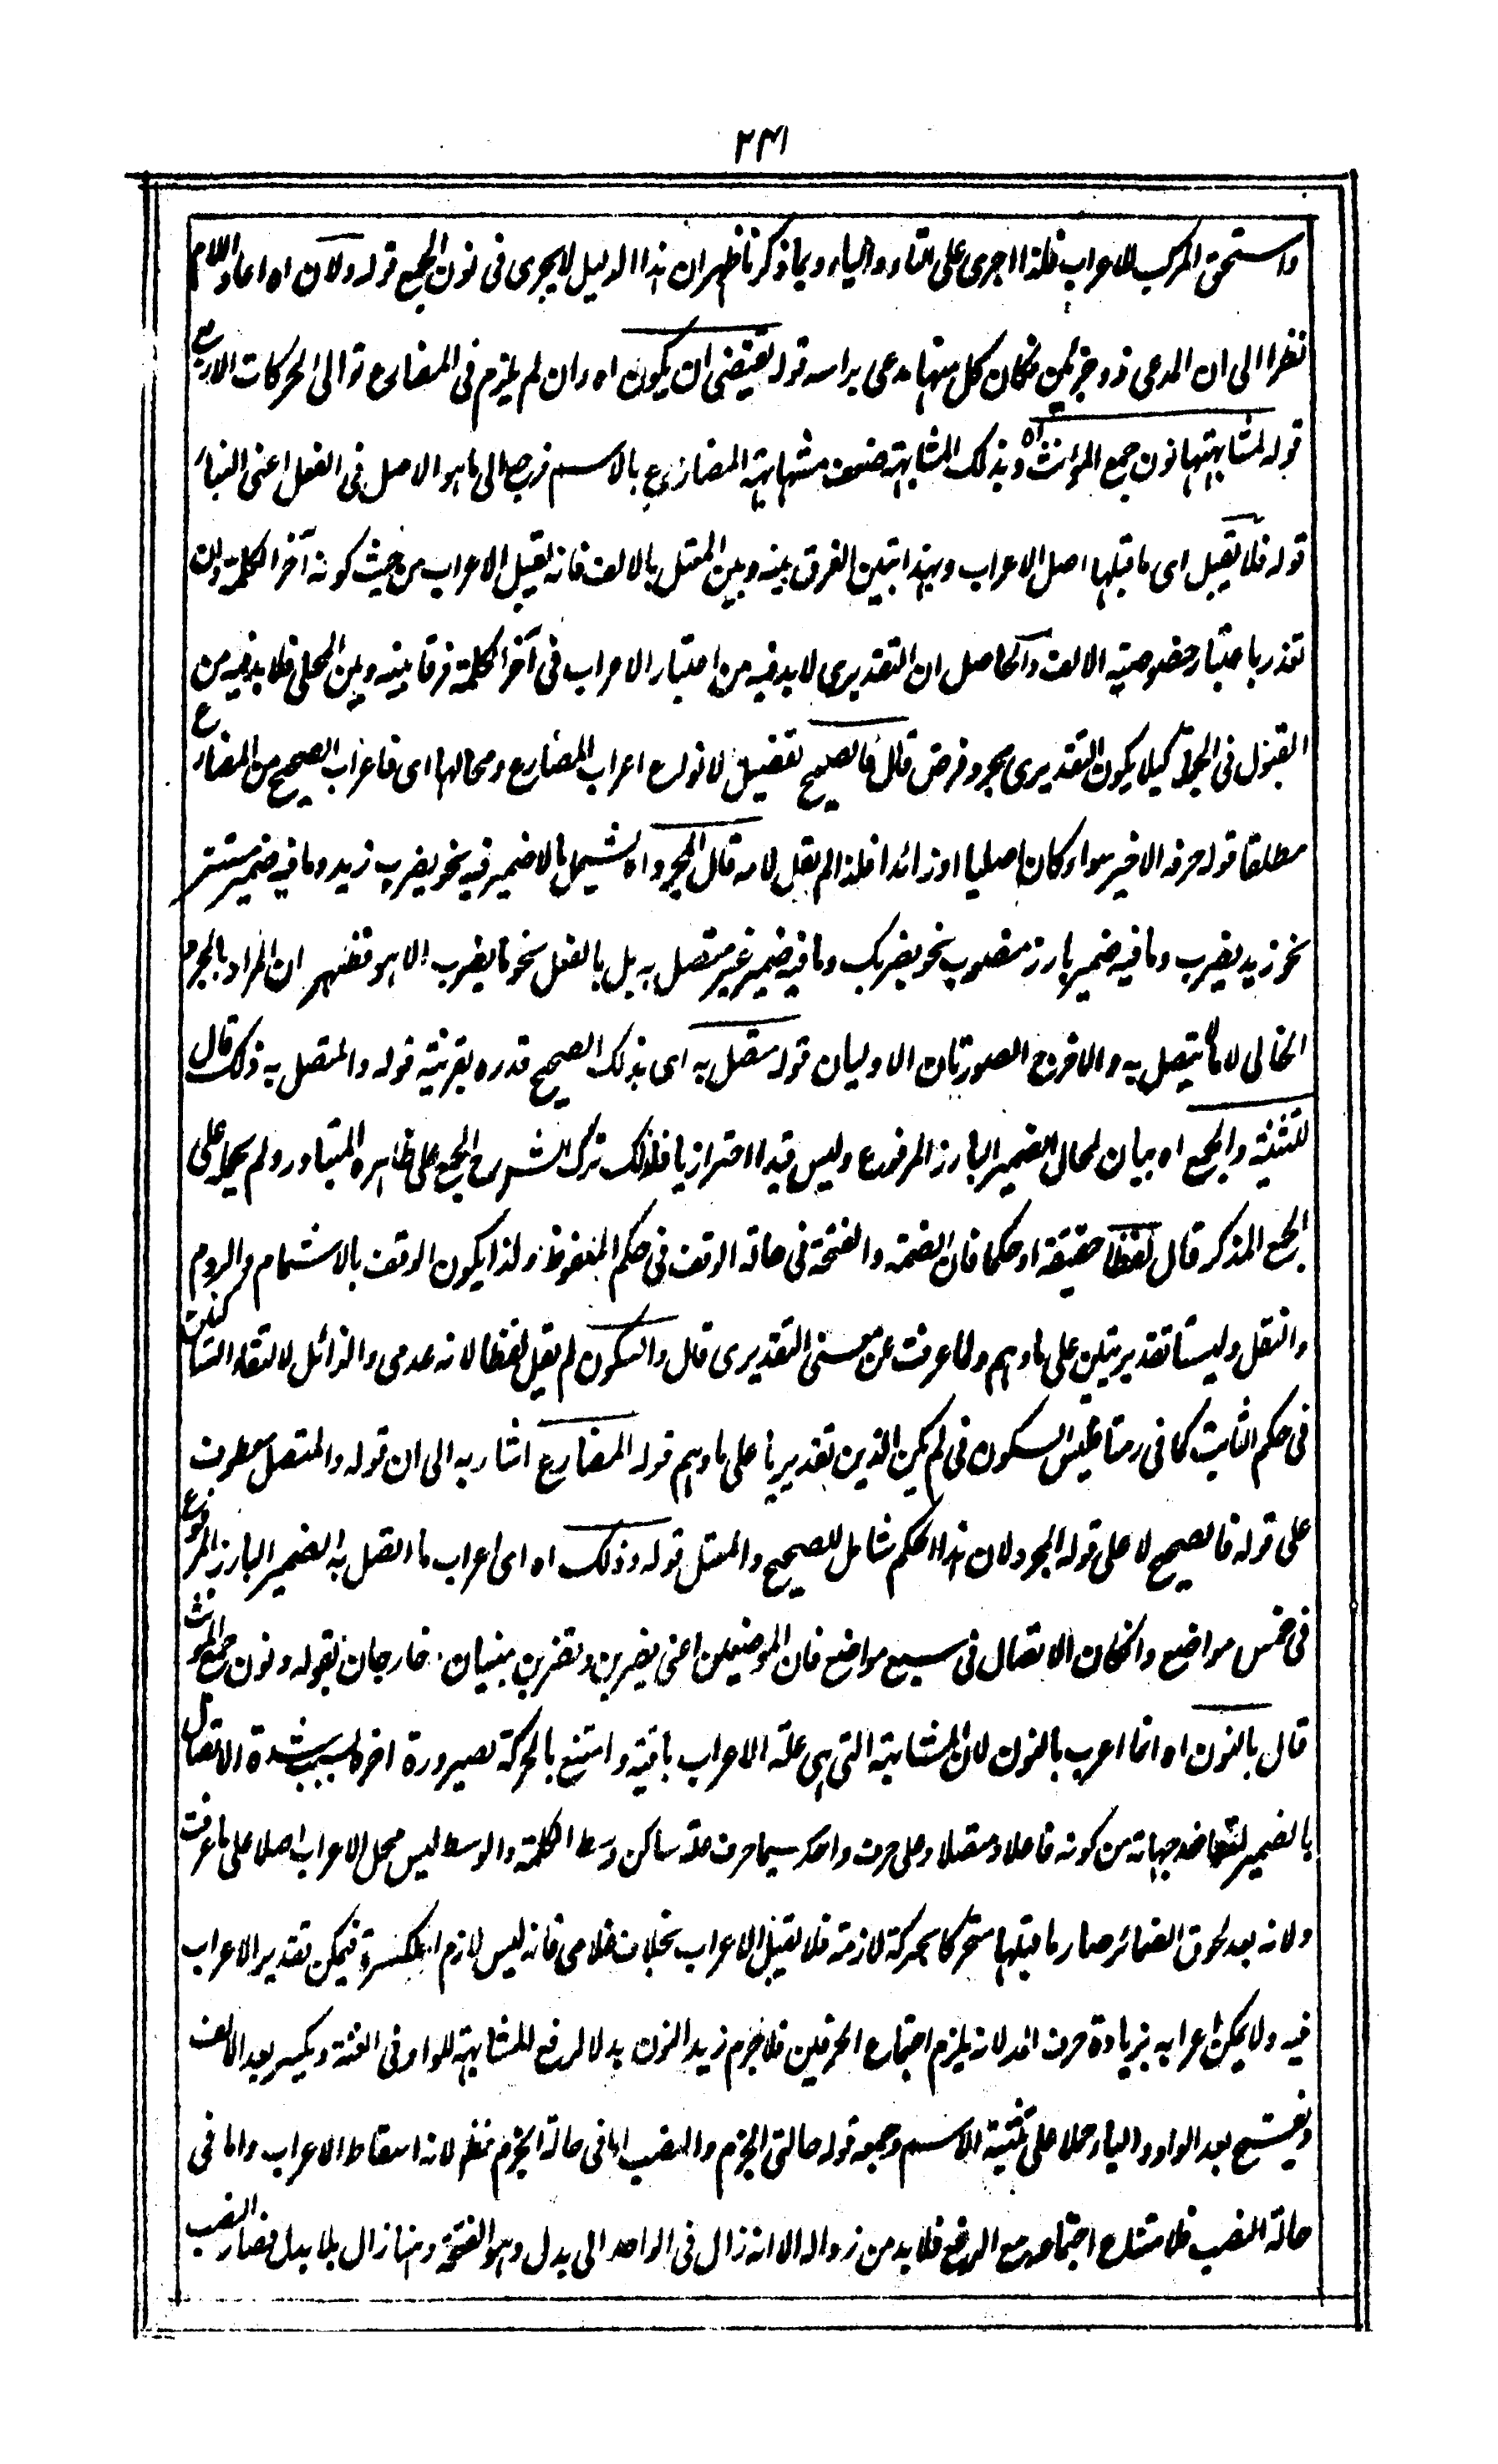 ٢٣١
واستحق المركب للاعراب فلذا اجرى على التاء والياء وبما ذكرنا ظهر ان هذا الدليل لا يجرى فى نون الجمع قوله ولان اه اعاد اللام
نظرا الى ان المدعى ذو جزئين فكان كل منهما مدعى براسه قوله يقتضى ان يكون اه وان لم يلزم فى المضارع توالى الحركات الاربع
قوله لمشابهتها نون جمع المؤنث اه وبذلك المشابهة ضعف مشابهة المضارع بالاسم فرجع الى ما هو الاصل فى الفعل اعنى البناء
قوله فلا يقبل اى ما قبلها اصل الاعراب وبهذا تبين الفرق بينه وبين المعتل بالالف فانه يقبل الاعراب من حيث كونه آخر الكلمة وان
تعذر باعتبار خصوصية الالف والحاصل ان التقديرى لا بد فيه من اعتبار الاعراب فى آخر الكلمة فرقا بينه وبين المحلى فلا بد فيه من
القبول فى الجملة كيلا يكون التقديرى مجرد فرض قال فالصحيح تفصيل لانواع اعراب المضارع ومحالها اى فاعراب الصحيح من المضارع
مطلقا قوله حرفه الاخير سواء كان اصليا او زائدا فلذا لم يقل لامه قال المجرد اه يشمل ما لا ضمير فيه نحو يضرب زيد وما فيه ضمير مستتر
نحو زيد يضرب وما فيه ضمير بارز منصوب نحو يضربك وما فيه ضمير غير متصل به بل بالفعل نحو ما يضرب الا هو فظهر ان المراد بالمجرد
الخالى لا ما يتصل به والا فرج الصورتان الاوليان قوله متصل به اى بذلك الصحيح قدره بقرينة قوله والمتصل به ذلك قال
للتثنية والجمع اه بيان لمحال الضمير البارز المرفوع وليس قيدا احترازيا فلذلك ترك الشرح الجمع على ظاهره المتبادر ولم يحمل على
الجمع المذكر قال لفظا حقيقة او حكما فان الضمة والفتحة فى حالة الوقف فى حكم الملفوظ ولذا يكون الوقف بالاشمام والروم
والنقل وليستا تقديريتين على ما وهم ولما عرفت عن معنى التقديرى قال والسكون لم يقل لفظا لانه عدمى والزائل لالتقاء الساكنين
فى حكم الثابت كما فى رمتا فليس السكون فى لم يكن الذين تقديريا على ما وهم قوله المضارع اشار به الى ان قوله والمتصل معطوف
على قوله فالصحيح لا على قوله المجرد لان هذا الحكم شامل للصحيح والمعتل قوله وذلك اه اى اعراب ما اتصل به الضمير البارز المرفوع
فى خمس مواضع وان كان الاتصال فى سبع مواضع فان الموضعين اعنى يضربن وتضربن مبنيان خارجان بقوله ونون جمع المؤنث
قال بالنون اه انما اعرب بالنون لان المشابهة التى هى علة الاعراب باقية وامتنع بالحركة لصيرورة اخره بسبب شدة الاتصال
بالضمير لتعاضد جهاته من كونه فاعلا ومتصلا وعلى حرف واحد سيما حرف علة ساكن وسط الكلمة والوسط ليس محل الاعراب اصلا على ما عرفت
ولانه بعد لحوق الضمائر صار ما قبلها متحركا بحركة لازمة فلا يقبل الاعراب بخلاف غلامى فانه ليس لازم الكسرة فيمكن تقدير الاعراب
فيه ولا يمكن اعرابه بزيادة حرف المد لانه يلزم اجتماع الحرفين فلا جرم زيد النون بدلا لرفع للمشابهة للواو فى الغنة ويكسر بعد الالف
ويفتح بعد الواو والياء حملا على تثنية الاسم وجمعه قوله حالتى الجزم والنصب اما فى حالة الجزم فظ لانه اسقاط الاعراب واما فى
حالة النصب فلامتناع اجتماعه مع الرفع فلا بد من زواله الا انه زال فى الواحد الى بدل وهو الفتحة وههنا زال بلا بدل فصار النصب